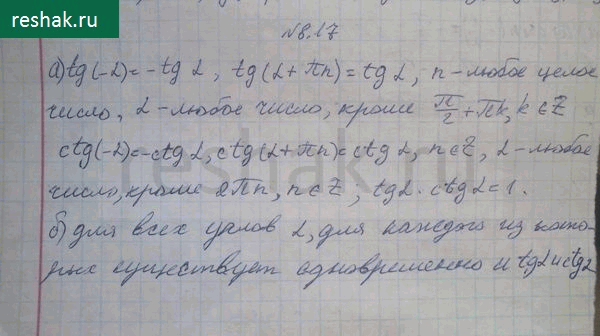 reshak.ru
№8.17
а) tg(-α)=-tg α, tg(α+πn)=tg α, n-любое целое
число, α-любое число, кроме π/2+πk, k∈Z
ctg(-α)=-ctg α, ctg(α+πn)=ctg α, n∈Z, α-любое
число, кроме 2πn, n∈Z; tgα·ctgα=1.
б) для всех углов α, для каждого из кото-
рых существует одновременно и tgα и ctgα
reshak.ru